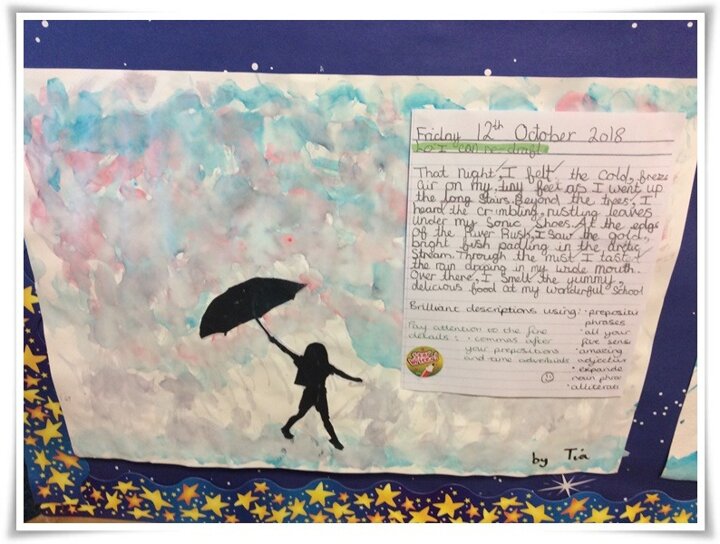 Friday 12th October 2018
LO I can re-draft
That night, I felt the cold, freeze
air on my tiny feet as I went up
the long stairs. Beyond the trees, I
heard the crimbling, rustling leaves
under my sonic shoes. At the edge
of the River Rusk, I saw the gold,
bright fish padling in the arctic
stream. Through the mist I taste
the rain droping in my wide mouth.
Over there, I smelt the yummy,
delicious food at my wonderful school
Brilliant descriptions using: · prepositi
phrases
· all your
five sens
· amazing
adjectives
· expande
noun phra
· alliterati
Pay attention to the fine
details: · commas after
your prepositions
and time adverbials
by Tia